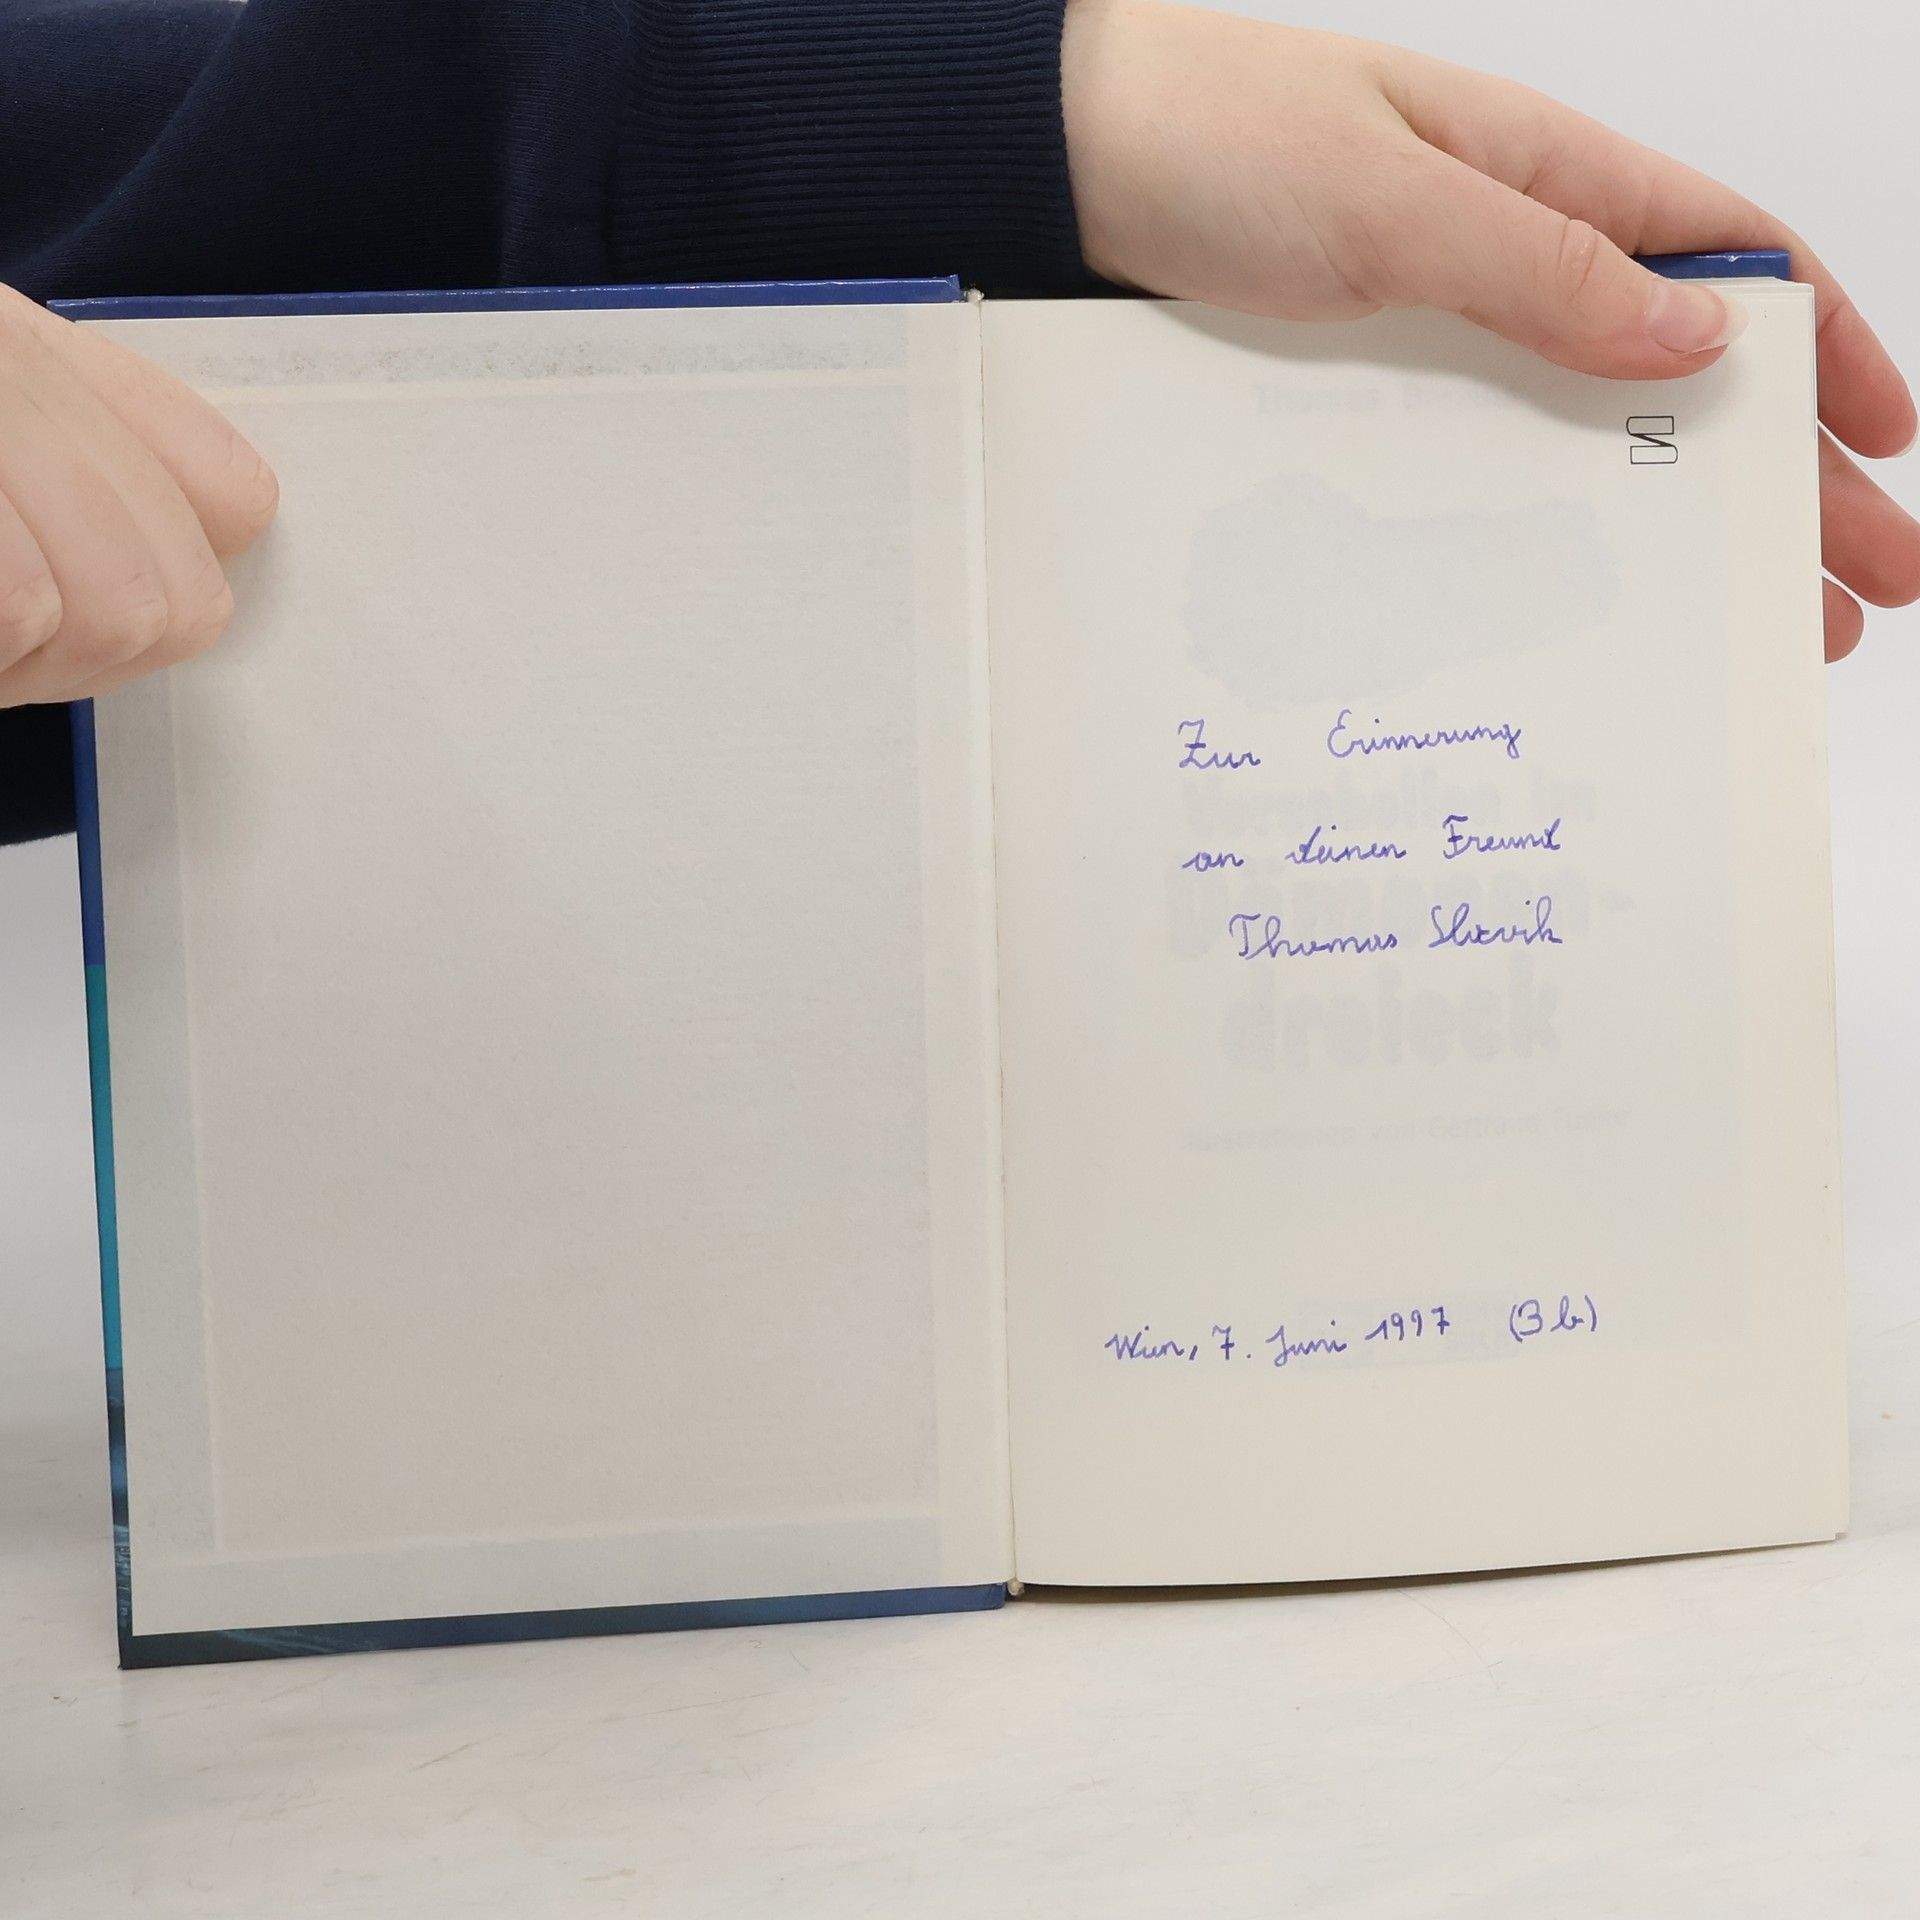 Zur Erinnerung
an deinen Freund
Thomas Slavik
dreieck
Wien, 7. Juni 1997 (3b)